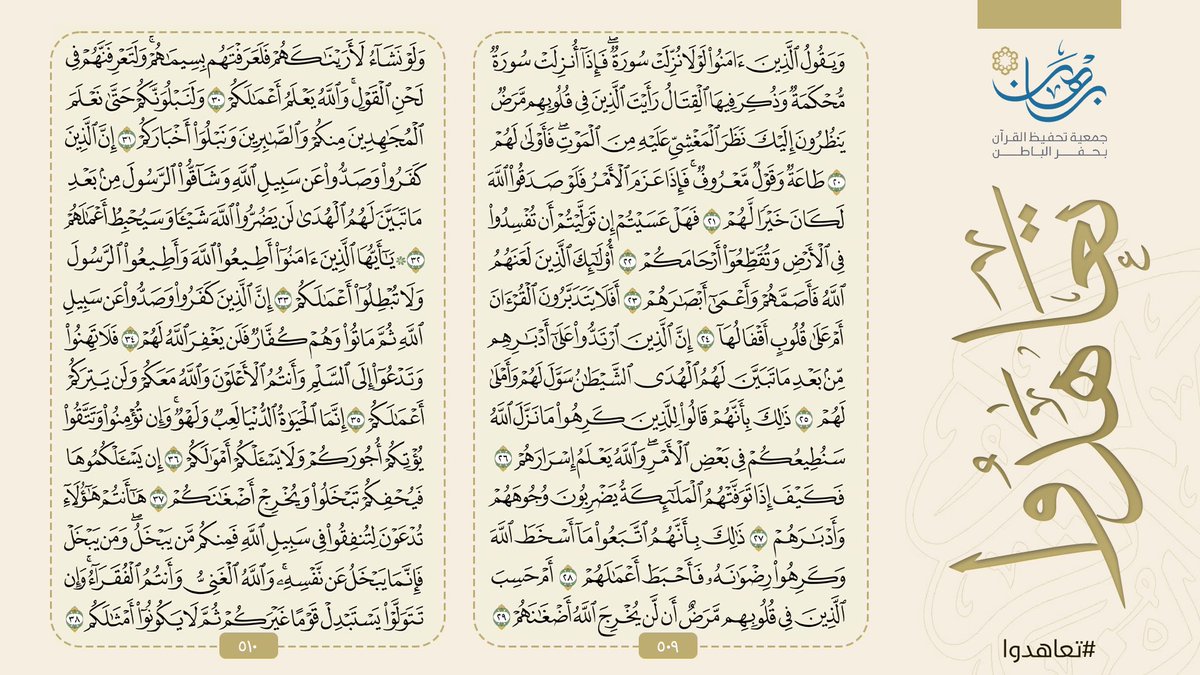 برهان
جمعية تحفيظ القرآن
بحفر الباطن
تعاهدوا
#تعاهدوا
وَيَقُولُ الَّذِينَ ءَامَنُوا۟ لَوْلَا نُزِّلَتْ سُورَةٌ ۖ فَإِذَآ أُنزِلَتْ سُورَةٌ
مُّحْكَمَةٌ وَذُكِرَ فِيهَا الْقِتَالُ رَأَيْتَ الَّذِينَ فِى قُلُوبِهِم مَّرَضٌ
يَنظُرُونَ إِلَيْكَ نَظَرَ الْمَغْشِىِّ عَلَيْهِ مِنَ الْمَوْتِ ۖ فَأَوْلَىٰ لَهُمْ
٢٠ طَاعَةٌ وَقَوْلٌ مَّعْرُوفٌ ۚ فَإِذَا عَزَمَ الْأَمْرُ فَلَوْ صَدَقُوا۟ اللَّهَ
لَكَانَ خَيْرًا لَّهُمْ ٢١ فَهَلْ عَسَيْتُمْ إِن تَوَلَّيْتُمْ أَن تُفْسِدُوا۟
فِى الْأَرْضِ وَتُقَطِّعُوٓا۟ أَرْحَامَكُمْ ٢٢ أُو۟لَـٰٓئِكَ الَّذِينَ لَعَنَهُمُ
اللَّهُ فَأَصَمَّهُمْ وَأَعْمَىٰٓ أَبْصَـٰرَهُمْ ٢٣ أَفَلَا يَتَدَبَّرُونَ الْقُرْءَانَ
أَمْ عَلَىٰ قُلُوبٍ أَقْفَالُهَآ ٢٤ إِنَّ الَّذِينَ ارْتَدُّوا۟ عَلَىٰٓ أَدْبَـٰرِهِم
مِّنۢ بَعْدِ مَا تَبَيَّنَ لَهُمُ الْهُدَى ۙ الشَّيْطَـٰنُ سَوَّلَ لَهُمْ وَأَمْلَىٰ
لَهُمْ ٢٥ ذَٰلِكَ بِأَنَّهُمْ قَالُوا۟ لِلَّذِينَ كَرِهُوا۟ مَا نَزَّلَ اللَّهُ
سَنُطِيعُكُمْ فِى بَعْضِ الْأَمْرِ ۖ وَاللَّهُ يَعْلَمُ إِسْرَارَهُمْ ٢٦
فَكَيْفَ إِذَا تَوَفَّتْهُمُ الْمَلَـٰٓئِكَةُ يَضْرِبُونَ وُجُوهَهُمْ
وَأَدْبَـٰرَهُمْ ٢٧ ذَٰلِكَ بِأَنَّهُمُ اتَّبَعُوا۟ مَآ أَسْخَطَ اللَّهَ
وَكَرِهُوا۟ رِضْوَٰنَهُۥ فَأَحْبَطَ أَعْمَـٰلَهُمْ ٢٨ أَمْ حَسِبَ
الَّذِينَ فِى قُلُوبِهِم مَّرَضٌ أَن لَّن يُخْرِجَ اللَّهُ أَضْغَـٰنَهُمْ ٢٩
٥٠٩
وَلَوْ نَشَآءُ لَأَرَيْنَـٰكَهُمْ فَلَعَرَفْتَهُم بِسِيمَـٰهُمْ ۚ وَلَتَعْرِفَنَّهُمْ فِى
لَحْنِ الْقَوْلِ ۚ وَاللَّهُ يَعْلَمُ أَعْمَـٰلَكُمْ ٣٠ وَلَنَبْلُوَنَّكُمْ حَتَّىٰ نَعْلَمَ
الْمُجَـٰهِدِينَ مِنكُمْ وَالصَّـٰبِرِينَ وَنَبْلُوَا۟ أَخْبَارَكُمْ ٣١ إِنَّ الَّذِينَ
كَفَرُوا۟ وَصَدُّوا۟ عَن سَبِيلِ اللَّهِ وَشَآقُّوا۟ الرَّسُولَ مِنۢ بَعْدِ
مَا تَبَيَّنَ لَهُمُ الْهُدَىٰ لَن يَضُرُّوا۟ اللَّهَ شَيْـًٔا وَسَيُحْبِطُ أَعْمَـٰلَهُمْ
٣٢ ۞ يَـٰٓأَيُّهَا الَّذِينَ ءَامَنُوٓا۟ أَطِيعُوا۟ اللَّهَ وَأَطِيعُوا۟ الرَّسُولَ
وَلَا تُبْطِلُوٓا۟ أَعْمَـٰلَكُمْ ٣٣ إِنَّ الَّذِينَ كَفَرُوا۟ وَصَدُّوا۟ عَن سَبِيلِ
اللَّهِ ثُمَّ مَاتُوا۟ وَهُمْ كُفَّارٌ فَلَن يَغْفِرَ اللَّهُ لَهُمْ ٣٤ فَلَا تَهِنُوا۟
وَتَدْعُوٓا۟ إِلَى السَّلْمِ وَأَنتُمُ الْأَعْلَوْنَ وَاللَّهُ مَعَكُمْ وَلَن يَتِرَكُمْ
أَعْمَـٰلَكُمْ ٣٥ إِنَّمَا الْحَيَوٰةُ الدُّنْيَا لَعِبٌ وَلَهْوٌ ۚ وَإِن تُؤْمِنُوا۟ وَتَتَّقُوا۟
يُؤْتِكُمْ أُجُورَكُمْ وَلَا يَسْـَٔلْكُمْ أَمْوَٰلَكُمْ ٣٦ إِن يَسْـَٔلْكُمُوهَا
فَيُحْفِكُمْ تَبْخَلُوا۟ وَيُخْرِجْ أَضْغَـٰنَكُمْ ٣٧ هَـٰٓأَنتُمْ هَـٰٓؤُلَآءِ
تُدْعَوْنَ لِتُنفِقُوا۟ فِى سَبِيلِ اللَّهِ فَمِنكُم مَّن يَبْخَلُ ۖ وَمَن يَبْخَلْ
فَإِنَّمَا يَبْخَلُ عَن نَّفْسِهِۦ ۚ وَاللَّهُ الْغَنِىُّ وَأَنتُمُ الْفُقَرَآءُ ۚ وَإِن
تَتَوَلَّوْا۟ يَسْتَبْدِلْ قَوْمًا غَيْرَكُمْ ثُمَّ لَا يَكُونُوٓا۟ أَمْثَـٰلَكُم ٣٨
٥١٠